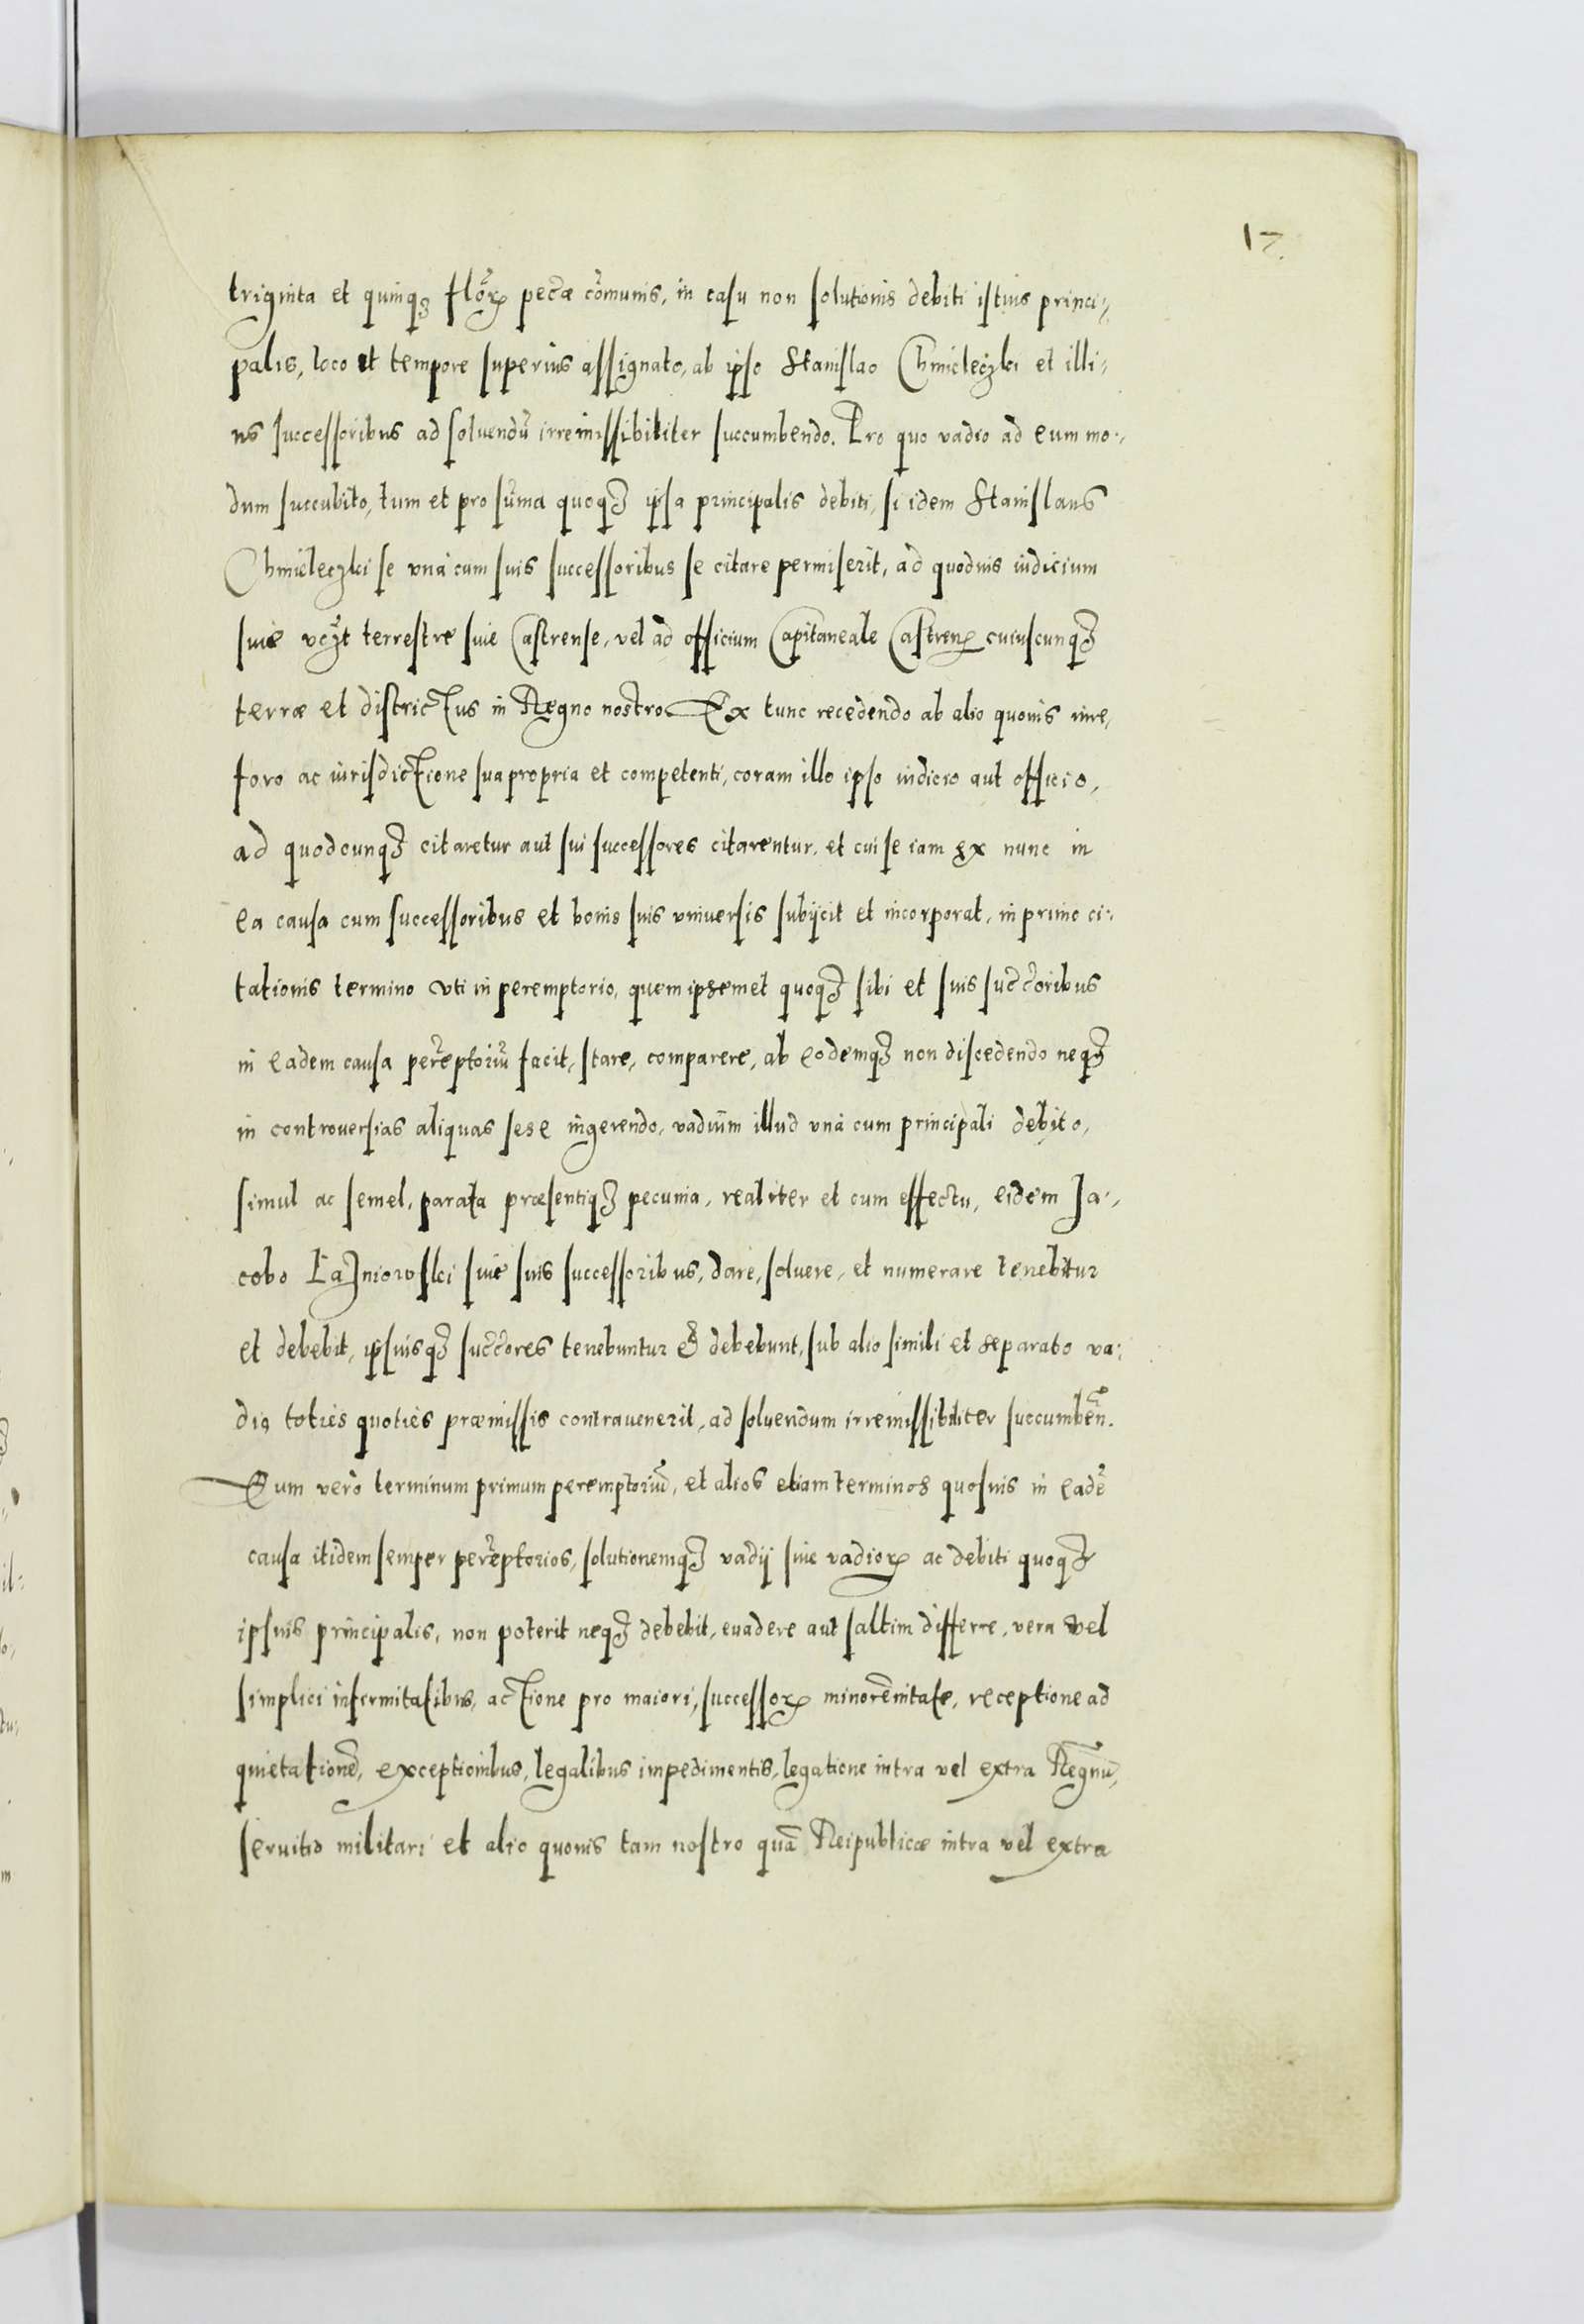 17.
triginta et quinqꝫ flõꝝ pec̃æ cõmunis, in casu non solutionis debiti istius princi⸗
palis, loco et tempore superius assignato, ab ipso Stanislao Chmieleczki et illi⸗
us successoribus ad soluendũ irremissibiliter succumbendo. Pro quo vadio ad eum mo⸗
dum succubito, tum et pro sũma quoqꝫ ipsa principalis debiti, si idem Stanislaus
Chmieleczki se vnà cum suis successoribus se citare permiserit, ad quoduis iudicium
siue terrestre siue Castrense, vel ad officium Capitaneale Castrenꝭ cuiuscunqꝫ
terræ et districtus in Regno nostro. Ex tunc recedendo ab alio quouis iure,
foro ac iurisdictione sua propria et competenti, coram illo ipso iudicio aut officio,
ad quodcunqꝫ citaretur aut sui successores citarentur, et cui se iam ex nunc in
ea causa cum successoribus et bonis suis vniuersis subijcit et incorporat, in primo ci⸗
tationis termino vti in peremptorio, quem ipsemet quoqꝫ sibi et suis succ̃oribus
in eadem causa perẽptoriũ facit, stare, comparere, ab eodemqꝫ non discedendo neqꝫ
in controuersias aliquas sese ingerendo, vadium illud vnà cum principali debito,
simul ac semel, parata præsentiqꝫ pecunia, realiter et cum effectu, eidem Ja⸗
cobo Łaʒniowski siue suis successoribus, dare, soluere, et numerare tenebitur
et debebit, ipsiusqꝫ succ̃ores tenebuntur & debebunt, sub alio simili et separato va⸗
dio, toties quoties præmissis contrauenerit, ad soluendum irremissibiliter succumbeñ.
Eum verò terminum primum peremptoriũ, et alios etiam terminos quosuis in eadẽ
causa itidem semper perẽptorios, solutionemqꝫ vadij siue vadioꝝ ac debiti quoqꝫ
ipsius principalis, non poterit neqꝫ debebit, euadere aut saltim differre, vera vel
simplici infirmitatibus, actione pro maiori, successoꝝ minorẽnitate, receptione ad
quietationẽ, exceptionibus, legalibus impedimentis, legatione intra vel extra Regnũ,
seruitio militari et alio quouis tam nostro quã Reipublicæ intra vel extra